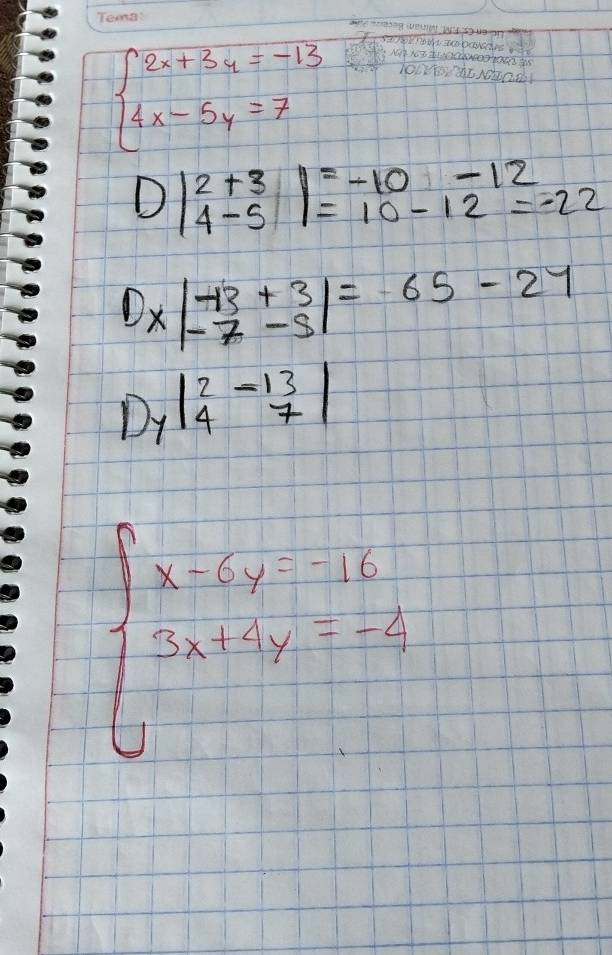 Tema:
2x + 3y = -13
4x - 5y = 7
D | 2 + 3 | = -10 - 12
| 4 - 5 | = 10 - 12 = -22
Dx | -13 + 3 | = -65 - 21
| -7 - 5 |
Dy | 2 -13 |
| 4 7 |
x - 6y = -16
3x + 4y = -4